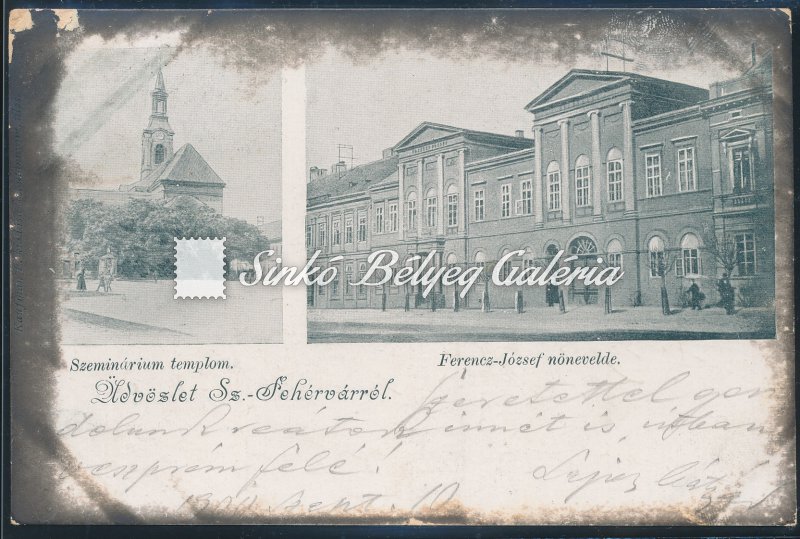 Sinkó Bélyeg Galéria
Szeminárium templom.
Ferencz-József nőnevelde.
Üdvözlet Sz.-Fehérvárról.
Szeretettel gon
dolunk reátok innét is, útban
veszprém felé!
sept. 10